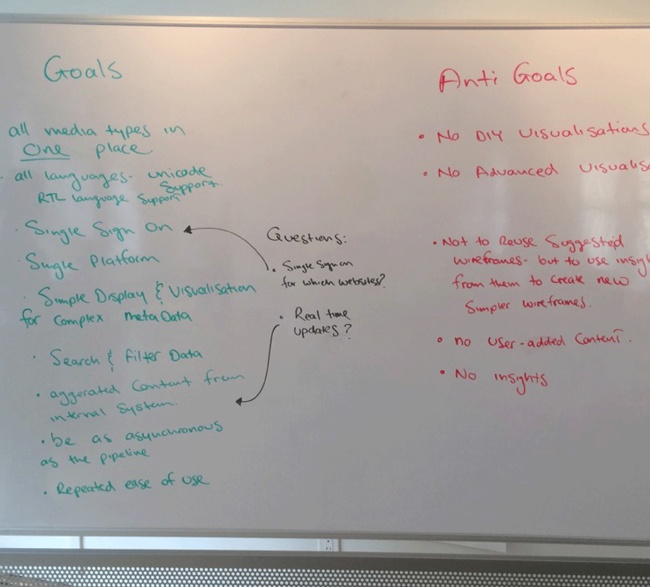 Goals
all media types in
One place
all languages - unicode
Support
RTL language Support
Single Sign On
Single Platform
Simple Display & Visualisation
for Complex meta Data
Search & filter Data
aggerated Content from
internal System.
be as asynchronous
as the pipeline
Repeated ease of use
Questions:
Single Sign on
for which websites?
Real time
updates?
Anti Goals
No DIY Visualisations
No Advanced Visualis
Not to Reuse Suggested
wireframes - but to use insig
from them to create new
Simpler wireframes.
no user-added Content.
No insights